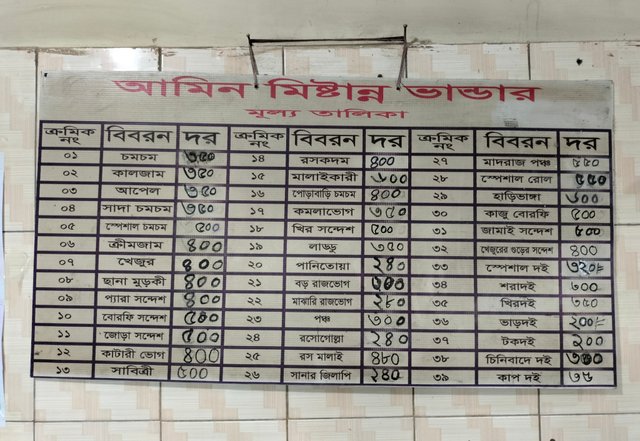 আমিন মিষ্টান্ন ভান্ডার
মূল্য তালিকা
ক্রমিক নং বিবরন দর ক্রমিক নং বিবরন দর ক্রমিক নং বিবরন দর
০১ চমচম ৩৫০ ১৪ রসকদম ৪০০ ২৭ মাদরাজ পঞ্চ ৫৫০
০২ কালজাম ৩৫০ ১৫ মালাইকারী ৩০০ ২৮ স্পেশাল রোল ৫৫০
০৩ আপেল ৩৫০ ১৬ পোড়াবাড়ি চমচম ৪০০ ২৯ হাড়িভাঙ্গা ৩০০
০৪ সাদা চমচম ৩৫০ ১৭ কমলাভোগ ৩৫০ ৩০ কাজু বোরফি ৫০০
০৫ স্পেশাল চমচম ৫০০ ১৮ খির সন্দেশ ৫০০ ৩১ জামাই সন্দেশ ৫০০
০৬ ক্রীমজাম ৪০০ ১৯ লাড্ডু ৩৫০ ৩২ খেজুরের গুড়ের সন্দেশ ৪০০
০৭ খেজুর ৪০০ ২০ পানিতোয়া ২৪০ ৩৩ স্পেশাল দই ৩২০/=
০৮ ছানা মুড়কী ৪০০ ২১ বড় রাজভোগ ৩০০ ৩৪ শরাদই ৩০০
০৯ প্যারা সন্দেশ ৪০০ ২২ মাঝারি রাজভোগ ২৮০ ৩৫ খিরদই ৩৫০
১০ বোরফি সন্দেশ ৫০০ ২৩ পঞ্চ ৩০০ ৩৬ ভাড়দই ২০০/=
১১ জোড়া সন্দেশ ৫০০ ২৪ রসোগোল্লা ২৪০ ৩৭ টকদই ২০০
১২ কাটারী ভোগ ৪০০ ২৫ রস মালাই ৪৮০ ৩৮ চিনিবাদে দই ৩০০
১৩ সাবিত্রী ৫০০ ২৬ সানার জিলাপি ২৪০ ৩৯ কাপ দই ৩৫